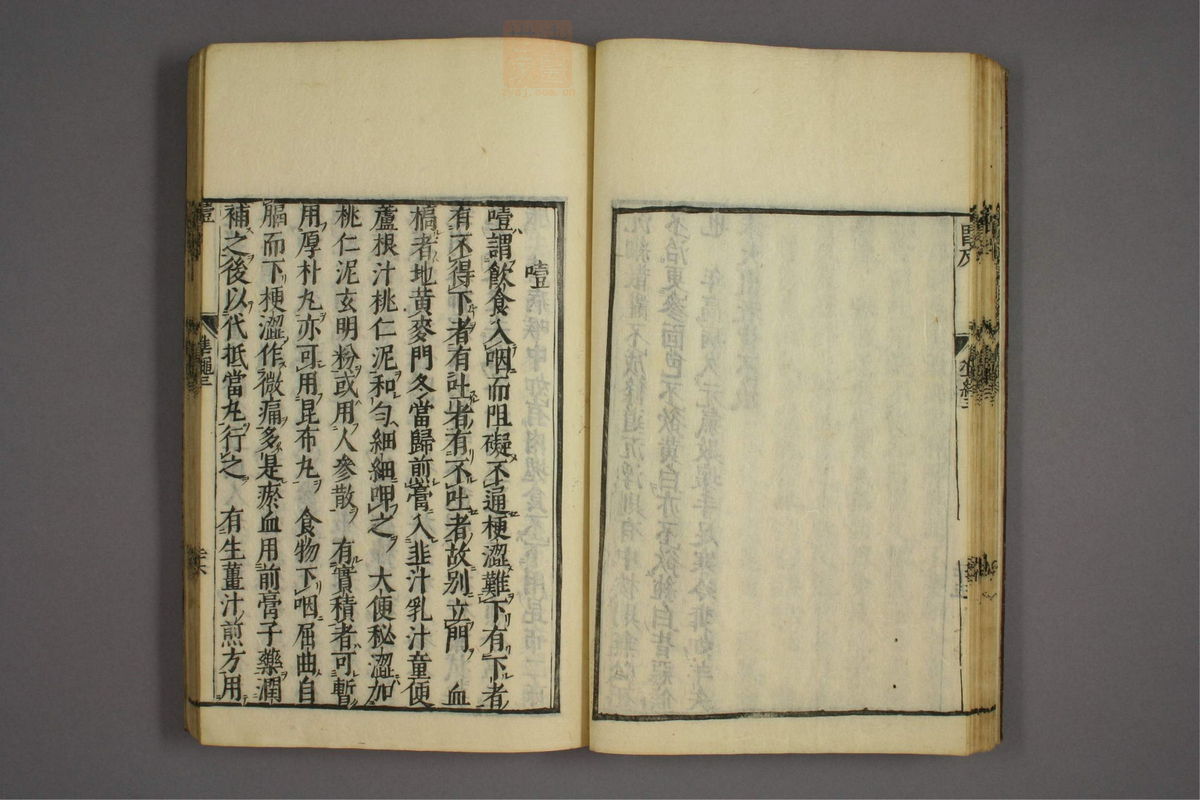 噎
噎謂飲食入咽而阻礙不通梗澀難下有下者
有不得下者有吐者有不吐者故别立門　血
槁者地黃麥門冬當歸煎膏入韭汁乳汁童便
蘆根汁桃仁泥和勻細細呷之　大便秘澀加
桃仁泥玄明粉或用人參散　有實積者可暫
用厚朴丸亦可用昆布丸　食物下咽屈曲自
膈而下梗澀作微痛多是瘀血用前膏子藥潤
補之後以代抵當丸行之　有生薑汁煎方用
噎
準繩三